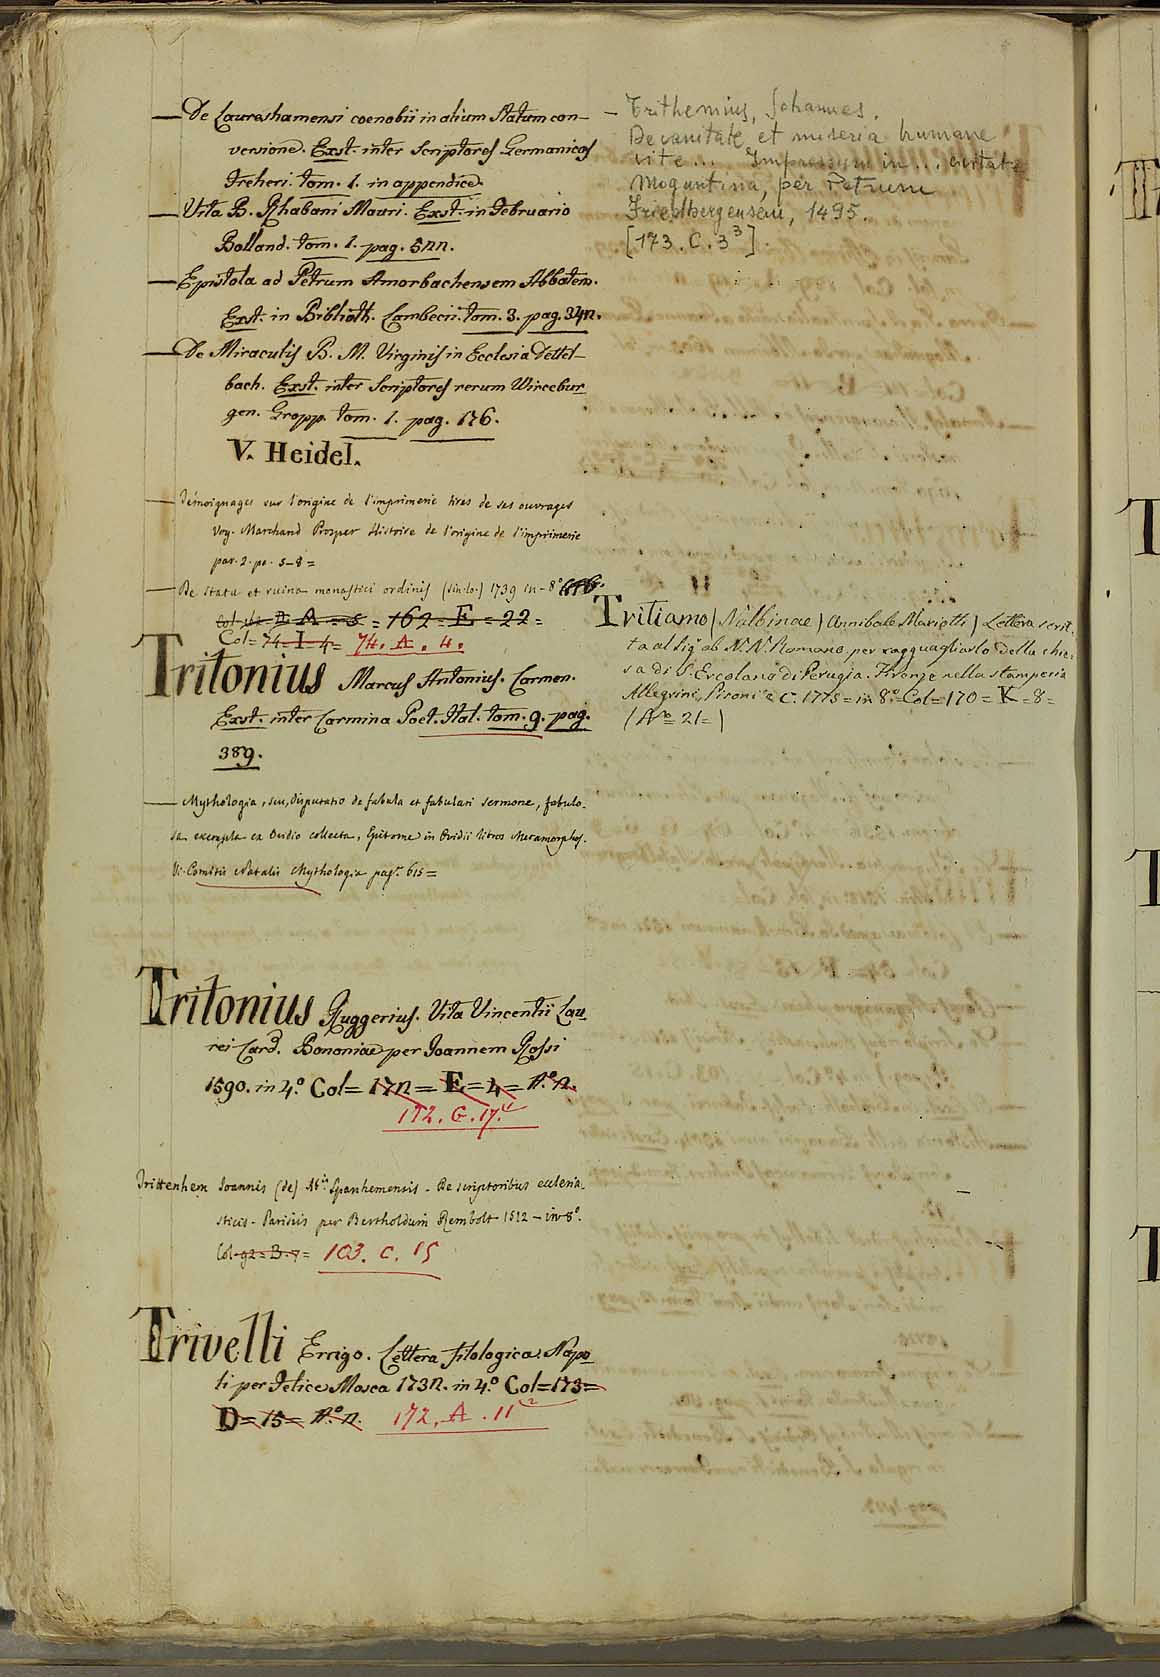 — De Laureshamensi coenobii in alium statum con-
versione. Exst. inter Scriptores Germanicos
Freheri. tom. 1. in appendice.
— Vita B. Rhabani Mauri. Exst. in Februario
Bolland. tom. 1. pag. 522.
— Epistola ad Petrum Amorbachensem Abbatem.
Exst. in Biblioth. Lambecii. tom. 3. pag. 342.
— De Miraculis B. M. Virginis in Ecclesia Dettel-
bach. Exst. inter Scriptores rerum Wircebur
gen. Gropp. tom. 1. pag. 176.
V. Heidel.
— Témoignages sur l'origine de l'imprimerie tires de ses ouvrages
Voy. Marchand Prosper Histoire de l'origine de l'imprimerie
par. 2. pa. 5-8=
— De statu et ruina monastici ordinis (sin. lo.) 1739 in-8°
A = 5 = 162 = E = 22 =
Col= 74 I 4= 74. A. 4.
Tritonius Marcus Antonius. Carmen.
Exst. inter Carmina Poet. Ital. tom. 9. pag.
389.
— Mythologia, seu, disputatio de fabula et fabulari sermone, fabulo-
sa exempla ex Ovidio collecta, Epitome in Ovidii libros Metamorphos.
V. Comitis Natalis Mythologia pag. 615=
Tritonius Ruggerius. Vita Vincentii Lau
rei Card. Bononiae per Joannem Rossi
1590. in 4.° Col= 172= E= 4= N.° 2.
172. G. 17.4
Trittenhem Joannis (de) Ab. Spanhemensis - De scriptoribus ecclesia-
sticis - Parisiis per Bertholdum Rembolt 1512 - in 8°.
Col 92= B. 7= 103. C. 15
Trivelli Errigo. Lettera filologica. Napo
li per Felice Mosca 1732. in 4.° Col=173=
D=15= N.° 2. 172. A. 11 2
— Trithemius, Johannes.
De vanitate et miseria humane
vite... Impressum in... civitate
Moguntina, per Petrum
Friedbergensem, 1495.
[173. C. 3 3]
Tritiamo (Nalbinae) Annibale Mariotti) Lettera scrit-
ta al Sig. ab N. N. Romano, per ragguagliarlo della chie-
sa di S. Ercolano di Perugia. Firenze nella stamperia
Allegrini, Pisoni e C. 1775= in 8°=Col=170= K=8=
(N.°= 21=)